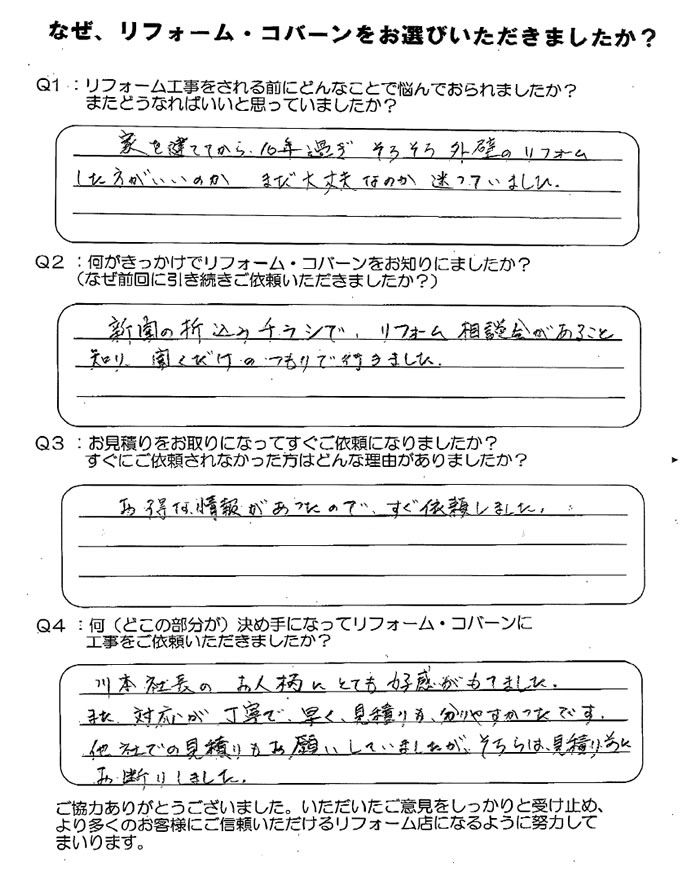 なぜ、リフォーム・コバーンをお選びいただきましたか？
Q1：リフォーム工事をされる前にどんなことで悩んでおられましたか？
またどうなればいいと思っていましたか？
家を建ててから、10年過ぎ そろそろ 外壁の リフォーム
した方がいいのか まだ大丈夫なのか 迷っていました。
Q2：何がきっかけでリフォーム・コバーンをお知りにましたか？
（なぜ前回に引き続きご依頼いただきましたか？）
新聞の折込みチラシで、リフォーム 相談会があること
知り、聞くだけの つもりで行きました。
Q3：お見積りをお取りになってすぐご依頼になりましたか？
すぐにご依頼されなかった方はどんな理由がありましたか？
お得な情報があったので、すぐ依頼しました。
Q4：何（どこの部分が）決め手になってリフォーム・コバーンに
工事をご依頼いただきましたか？
川本社長の お人柄にとても好感がもてました。
また、対応が 丁寧で、早く、見積りも、分りやすかったです。
他社での見積りもお願いしていましたが、そちらは、見積り前に
お断りしました。
ご協力ありがとうございました。いただいたご意見をしっかりと受け止め、
より多くのお客様にご信頼いただけるリフォーム店になるように努力して
まいります。